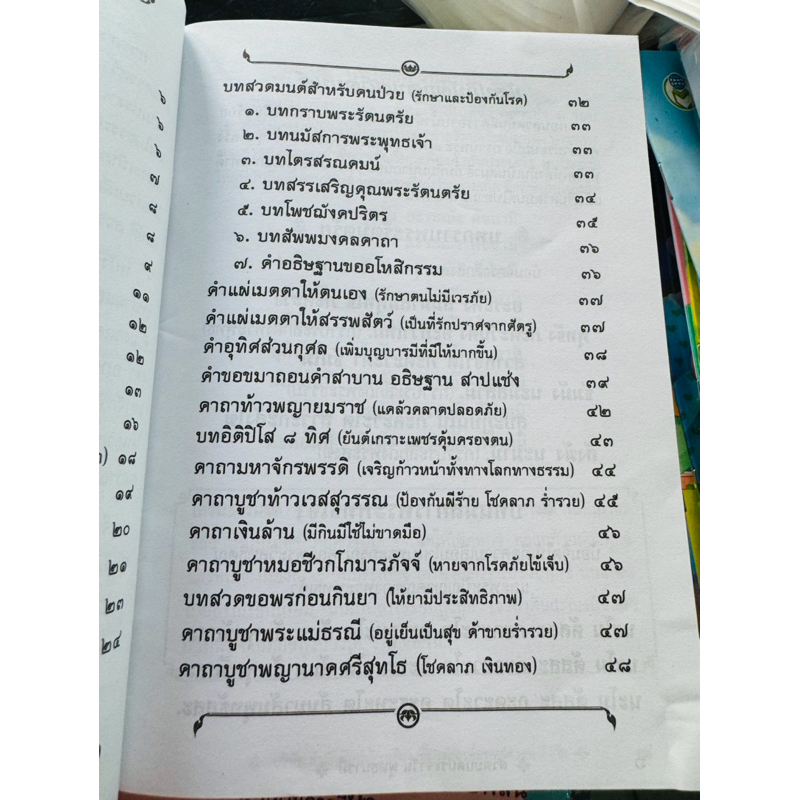 บทสวดมนต์สำหรับคนป่วย (รักษาและป้องกันโรค) ๓๒
๑. บทกราบพระรัตนตรัย ๓๓
๒. บทนมัสการพระพุทธเจ้า ๓๓
๓. บทไตรสรณคมน์ ๓๓
๔. บทสรรเสริญคุณพระรัตนตรัย ๓๔
๕. บทโพชฌังคปริตร ๓๕
๖. บทสัพพมงคลคาถา ๓๖
๗. คำอธิษฐานขออโหสิกรรม ๓๖
คำแผ่เมตตาให้ตนเอง (รักษาตนไม่มีเวรภัย) ๓๗
คำแผ่เมตตาให้สรรพสัตว์ (เป็นที่รักปราศจากศัตรู) ๓๗
คำอุทิศส่วนกุศล (เพิ่มบุญบารมีที่มีให้มากขึ้น) ๓๘
คำขอขมาถอนคำสาบาน อธิษฐาน สาปแช่ง ๓๙
คาถาท้าวพญายมราช (แคล้วคลาดปลอดภัย) ๔๒
บทอิติปิโส ๘ ทิศ (ยันต์เกราะเพชรคุ้มครองตน) ๔๓
คาถามหาจักรพรรดิ (เจริญก้าวหน้าทั้งทางโลกทางธรรม) ๔๔
คาถาบูชาท้าวเวสสุวรรณ (ป้องกันผีร้าย โชคลาภ ร่ำรวย) ๔๕
คาถาเงินล้าน (มีกินมีใช้ไม่ขาดมือ) ๔๖
คาถาบูชาหมอชีวกโกมารภัจจ์ (หายจากโรคภัยไข้เจ็บ) ๔๖
บทสวดขอพรก่อนกินยา (ให้ยามีประสิทธิภาพ) ๔๗
คาถาบูชาพระแม่ธรณี (อยู่เย็นเป็นสุข ค้าขายร่ำรวย) ๔๗
คาถาบูชาพญานาคศรีสุทโธ (โชคลาภ เงินทอง) ๔๘
๖
๖
๖
๗
๘
๘
๙
๑๑
๑๒
๑๒
๑๓
๑๖
๑๘
๑๙
๒๐
๒๑
๒๓
๒๔